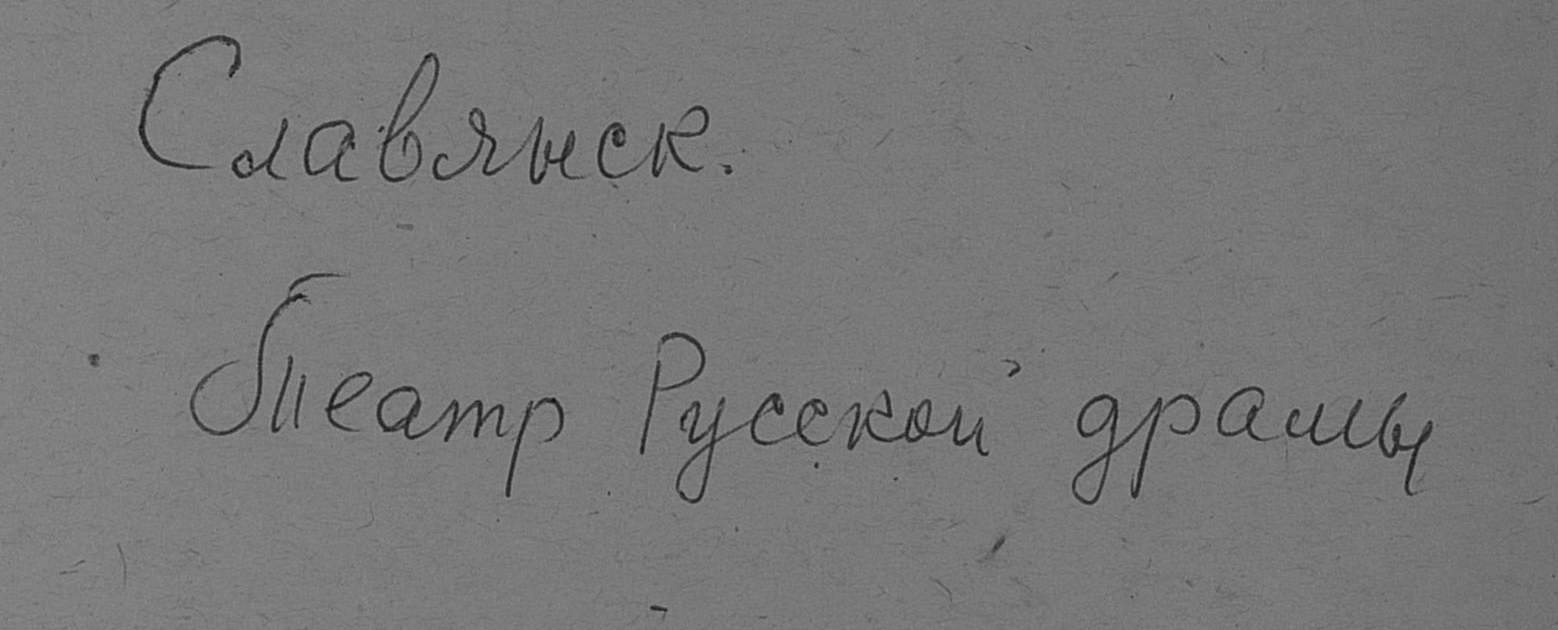 Славянск.
Театр Русской драмы